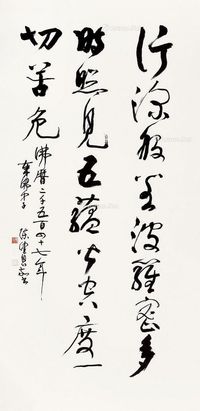 行深般若波羅密多
時照見五蘊皆空度一
切苦危
佛曆二千五百四十七年
弟子